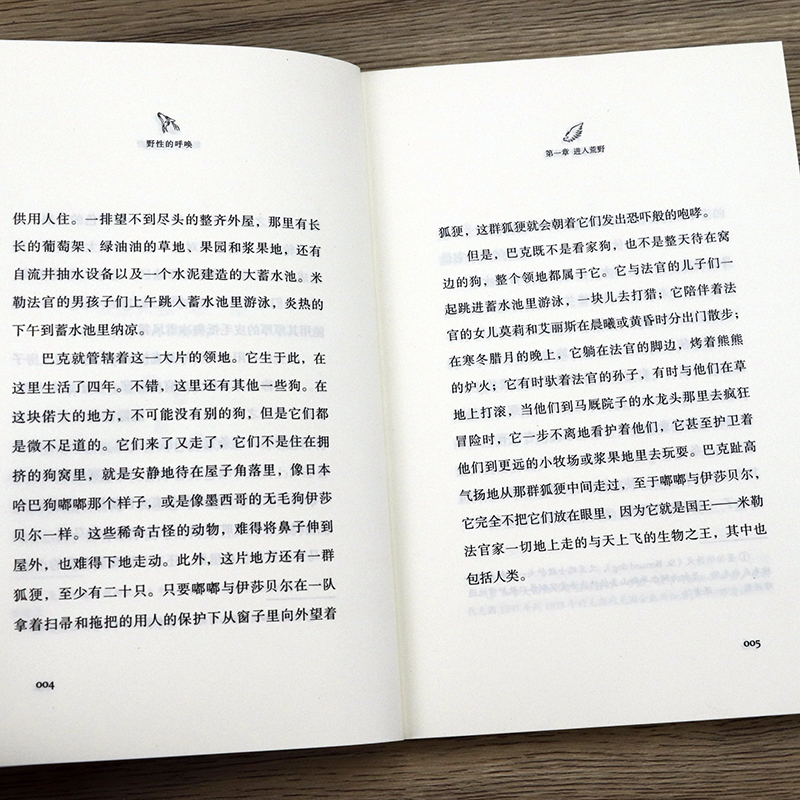 野性的呼唤
供用人住。一排望不到尽头的整齐外屋，那里有长
长的葡萄架、绿油油的草地、果园和浆果地，还有
自流井抽水设备以及一个水泥建造的大蓄水池。米
勒法官的男孩子们上午跳入蓄水池里游泳，炎热的
下午到蓄水池里纳凉。
巴克就管辖着这一大片的领地。它生于此，在
这里生活了四年。不错，这里还有其他一些狗。在
这块偌大的地方，不可能没有别的狗，但是它们都
是微不足道的。它们来了又走了，它们不是住在拥
挤的狗窝里，就是安静地待在屋子角落里，像日本
哈巴狗嘟嘟那个样子，或是像墨西哥的无毛狗伊莎
贝尔一样。这些稀奇古怪的动物，难得将鼻子伸到
屋外，也难得下地走动。此外，这片地方还有一群
狐狸，至少有二十只。只要嘟嘟与伊莎贝尔在一队
拿着扫帚和拖把的用人的保护下从窗子里向外望着
004
第一章 进入荒野
狐狸，这群狐狸就会朝着它们发出恐吓般的咆哮。
但是，巴克既不是看家狗，也不是整天待在窝
边的狗，整个领地都属于它。它与法官的儿子们一
起跳进蓄水池里游泳，一块儿去打猎；它陪伴着法
官的女儿莫莉和艾丽斯在晨曦或黄昏时分出门散步；
在寒冬腊月的晚上，它躺在法官的脚边，烤着熊熊
的炉火；它有时驮着法官的孙子，有时与他们在草
地上打滚，当他们到马厩院子的水龙头那里去疯狂
冒险时，它一步不离地看护着他们，它甚至护卫着
他们到更远的小牧场或浆果地里去玩耍。巴克趾高
气扬地从那群狐狸中间走过，至于嘟嘟与伊莎贝尔，
它完全不把它们放在眼里，因为它就是国王——米勒
法官家一切地上走的与天上飞的生物之王，其中也
包括人类。
005